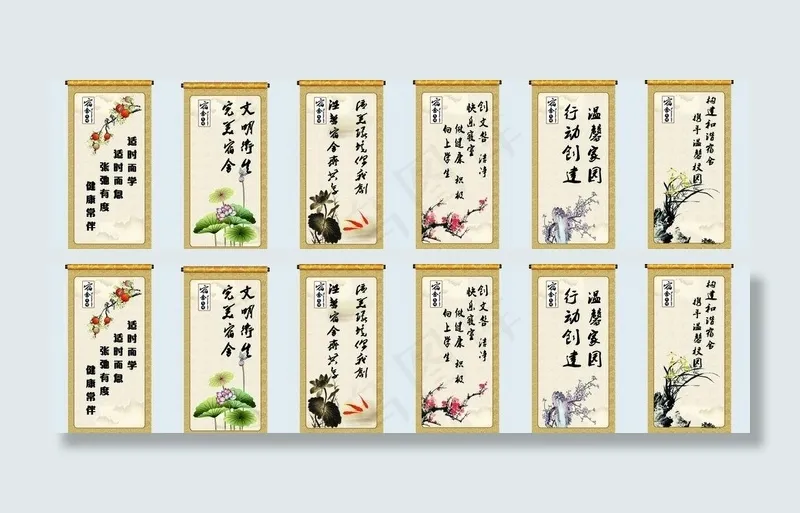 宿舍
适时而学
适时而息
张弛有度
健康常伴
宿舍
文明衛生
完美宿舍
宿舍
美环境你我创
宿舍齐共享
宿舍
创文明 洁净
快乐寝室
做健康 积极
向上学生
宿舍
温馨家园
行动创建
宿舍
构建和谐宿舍
携手温馨校园
宿舍
适时而学
适时而息
张弛有度
健康常伴
宿舍
文明衛生
完美宿舍
宿舍
美环境你我创
宿舍齐共享
宿舍
创文明 洁净
快乐寝室
做健康 积极
向上学生
宿舍
温馨家园
行动创建
宿舍
构建和谐宿舍
携手温馨校园